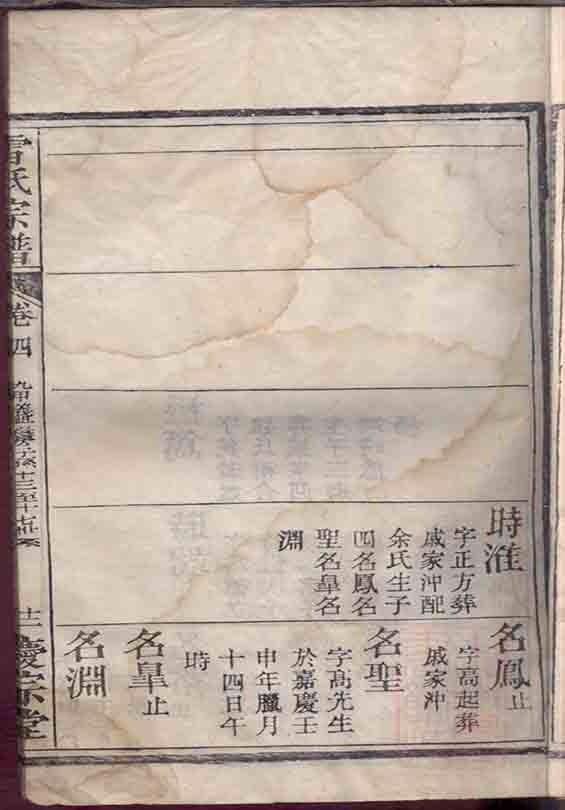 時淮
字正方葬
戚家沖配
余氏生子
四名鳳名
聖名皐名
淵
名鳳止
字高起葬
戚家沖
名聖
字高先生
於嘉慶壬
申年臘月
十四日午
時
名皐止
名淵
氏宗譜
卷四
慶宗堂